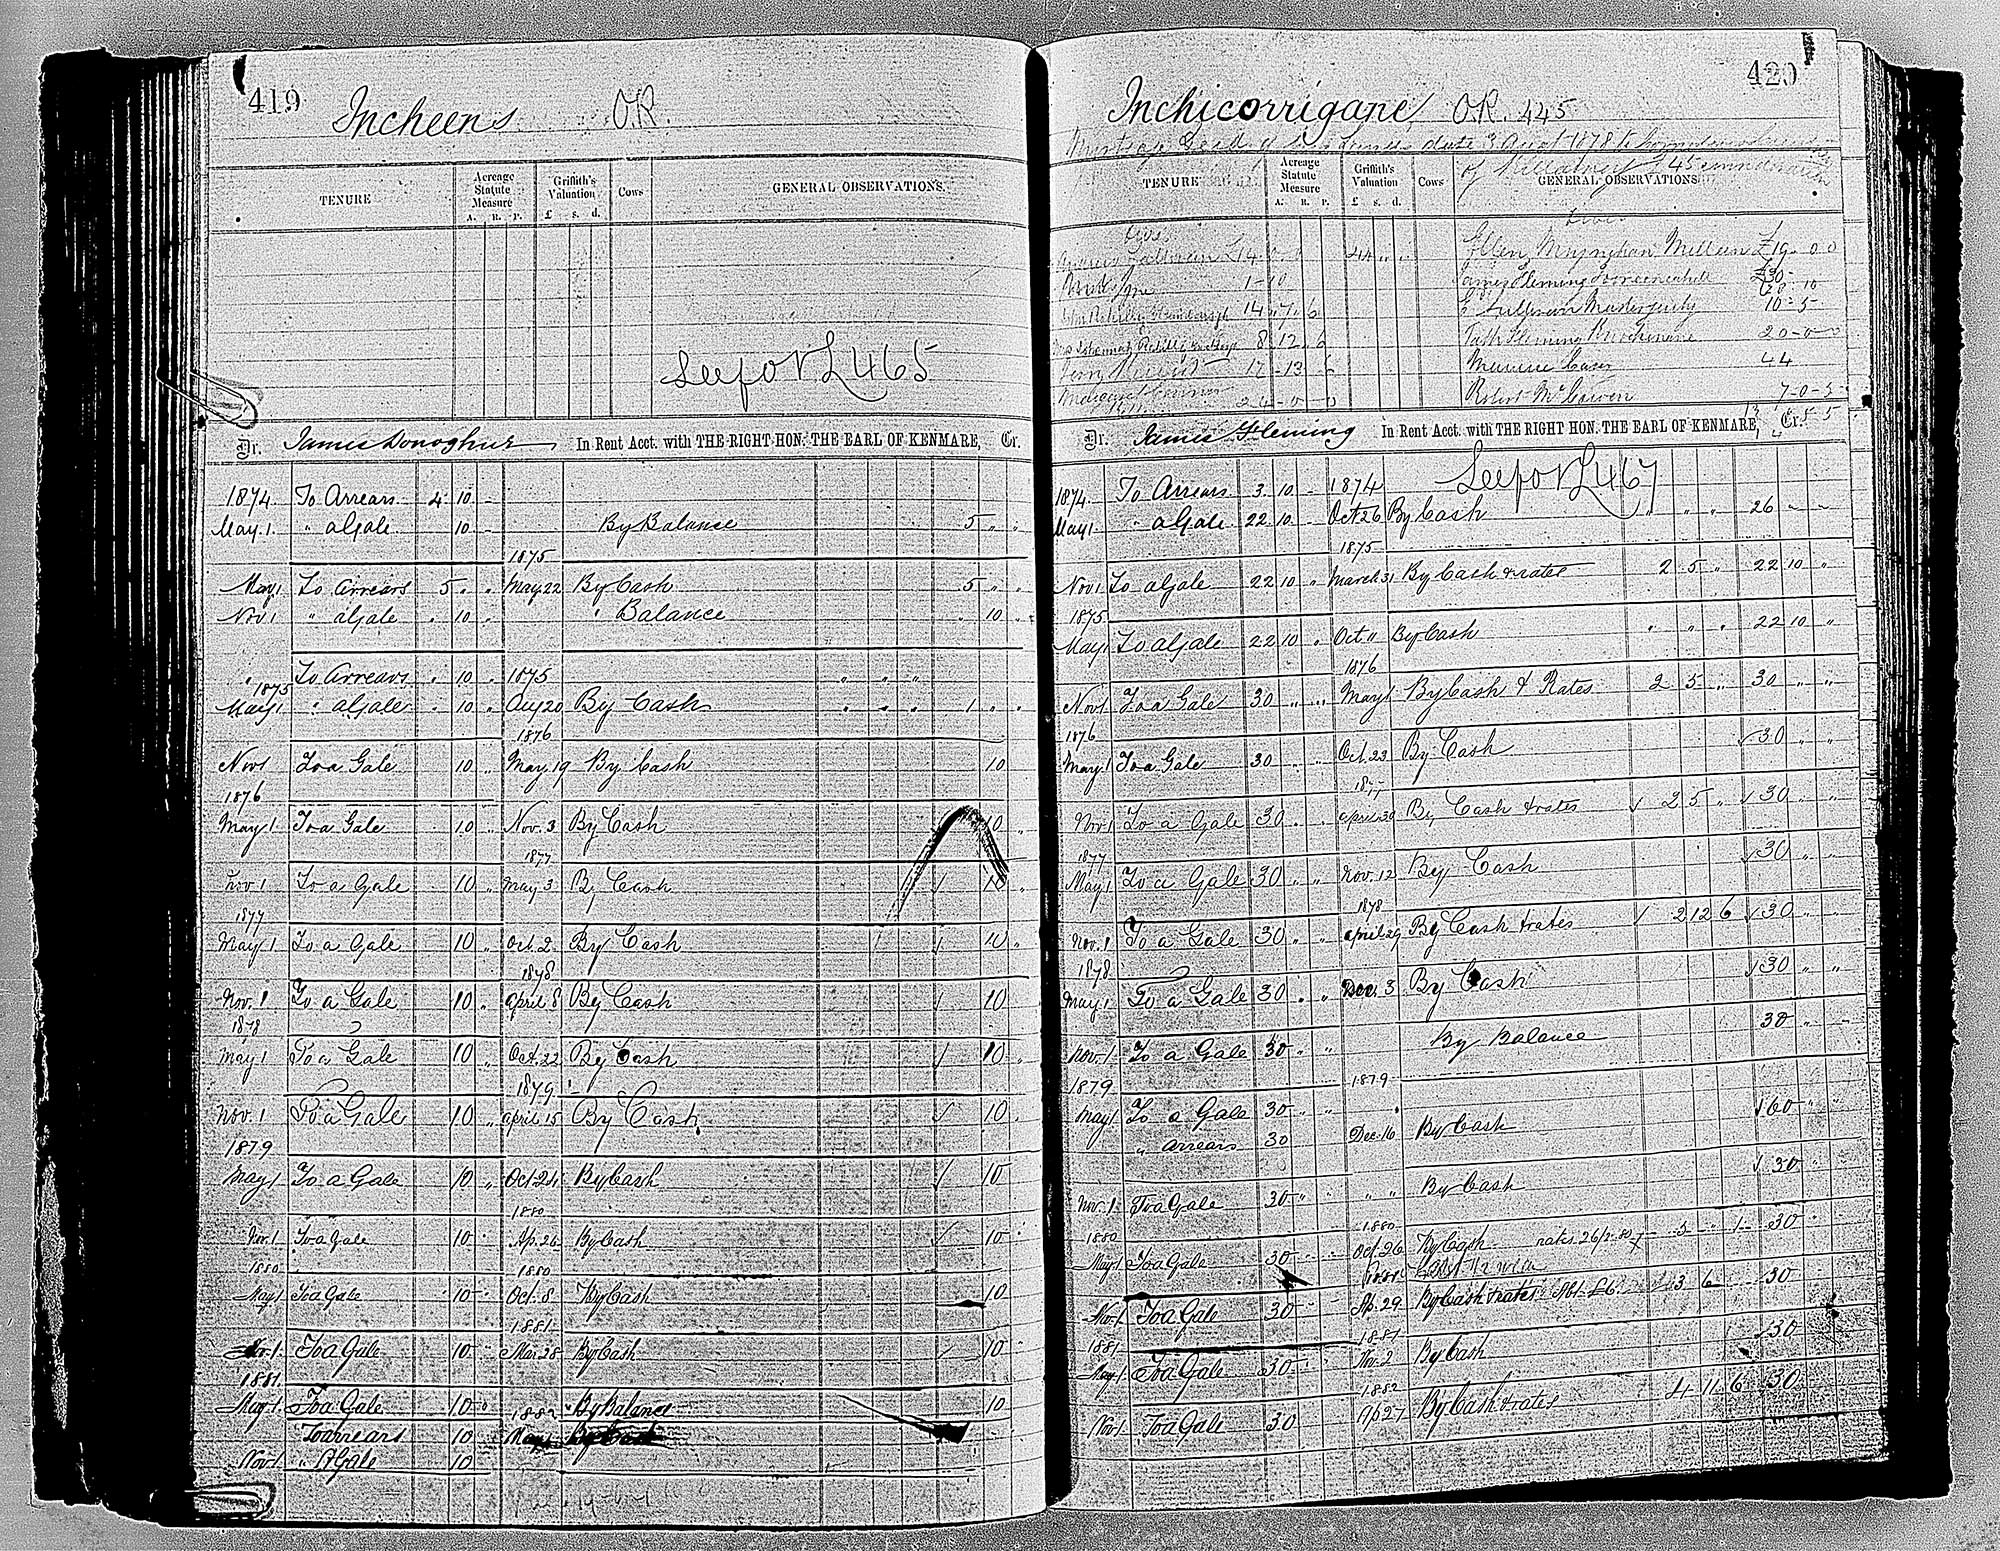 419
Incheens O.R.
TENURE
Acreage Statute Measure
A. R. P.
Griffith's Valuation
£ s. d.
Cows
GENERAL OBSERVATIONS.
See for L 465
Dr. James Donoghue In Rent Acct. with THE RIGHT HON. THE EARL OF KENMARE, Cr.
1874 To Arrears 4 10 -
May 1 " a Gale 10 - By Balance 5 " "
1875
May 1 To Arrears 5 " " May 22 By Cash 5 " "
Nov 1 " a Gale " 10 " " Balance " 10 "
" To Arrears " 10 " 1875 " " "
1875
May 1 " a Gale " 10 " Aug 20 By Cash " " " 1 " "
1876
Nov 1 To a Gale 10 " May 19 By Cash 10
1876
May 1 To a Gale 10 " Nov. 3 By Cash 10 "
1877
Nov 1 To a Gale 10 " May 3 By Cash 10 "
1877
May 1 To a Gale 10 " Oct. 2 By Cash 10 "
1878
Nov. 1 To a Gale 10 " April 8 By Cash 10
1878
May 1 To a Gale 10 " Oct. 22 By Cash 10 "
1879
Nov. 1 To a Gale 10 " April 15 By Cash 10
1879
May 1 To a Gale 10 " Oct 24 By Cash 10
1880
Nov. 1 To a Gale 10 Ap. 26 By Cash 10
1880 1880
May 1 To a Gale 10 Oct. 8 By Cash 10
1881
Nov. 1 To a Gale 10 Mar. 28 By Cash 10
1881
May 1 To a Gale 10 1882 By Balance 10
To arrears 10 May
Nov 1 " A Gale 10
420
Inchicorrigane O.R. 445
date 3 August 1878 to
of £45
TENURE
Acreage Statute Measure
A. R. P.
Griffith's Valuation
£ s. d.
Cows
GENERAL OBSERVATIONS
Sullivan £14 " 0 " 0 44 " " Ellen Moynihan £19-0-0
1-10 James Fleming £30-
28-10
14 " 7 " 6 Sullivan 10-5-
8 " 12 " 6 Fleming 20-0-0
17-13-6 Maurice 44
Margaret Connor 24-0-0 Robert McCowen 7-0-5
Dr. James Fleming In Rent Acct. with THE RIGHT HON. THE EARL OF KENMARE, Cr.
See for L 467
1874 To Arrears 3 10 - 1874
May 1 " a Gale 22 10 - Oct 26 By Cash " " " 26 - -
1875
Nov 1 To a Gale 22 10 " March 31 By Cash & rates 2 5 " 22 10 "
1875
May 1 To a Gale 22 10 " Oct 11 By Cash " " " 22 10 "
1876
Nov 1 To a Gale 30 " " May 1 By Cash & Rates 2 5 " 30 " "
1876
May 1 To a Gale 30 " " Oct. 23 By Cash 30 " "
1877
Nov 1 To a Gale 30 " " April 20 By Cash & rates 2 5 " 30 " "
1877
May 1 To a Gale 30 " " Nov. 12 By Cash 30 " "
1878
Nov. 1 To a Gale 30 " " April 29 By Cash & rates 2 12 6 30 " "
1878
May 1 To a Gale 30 " " Dec. 3 By Cash 30 " "
Nov. 1 To a Gale 30 " " By Balance 30 " -
1879 1879
May 1 To a Gale 30 " "
" arrears 30 Dec. 16 By Cash 60 " "
Nov. 1 To a Gale 30 " " " " By Cash 30
1880 1880
May 1 To a Gale 30 Oct 26 By Cash rates 26/2.80 30
Nov. 1 To a Gale 30 Ap. 29 By Cash & rates 3 6 30
1881 1881
May 1 To a Gale 30 Nov. 2 By Cash 30
1882
Nov 1 To a Gale 30 Ap 27 By Cash & rates 4 11 6 30